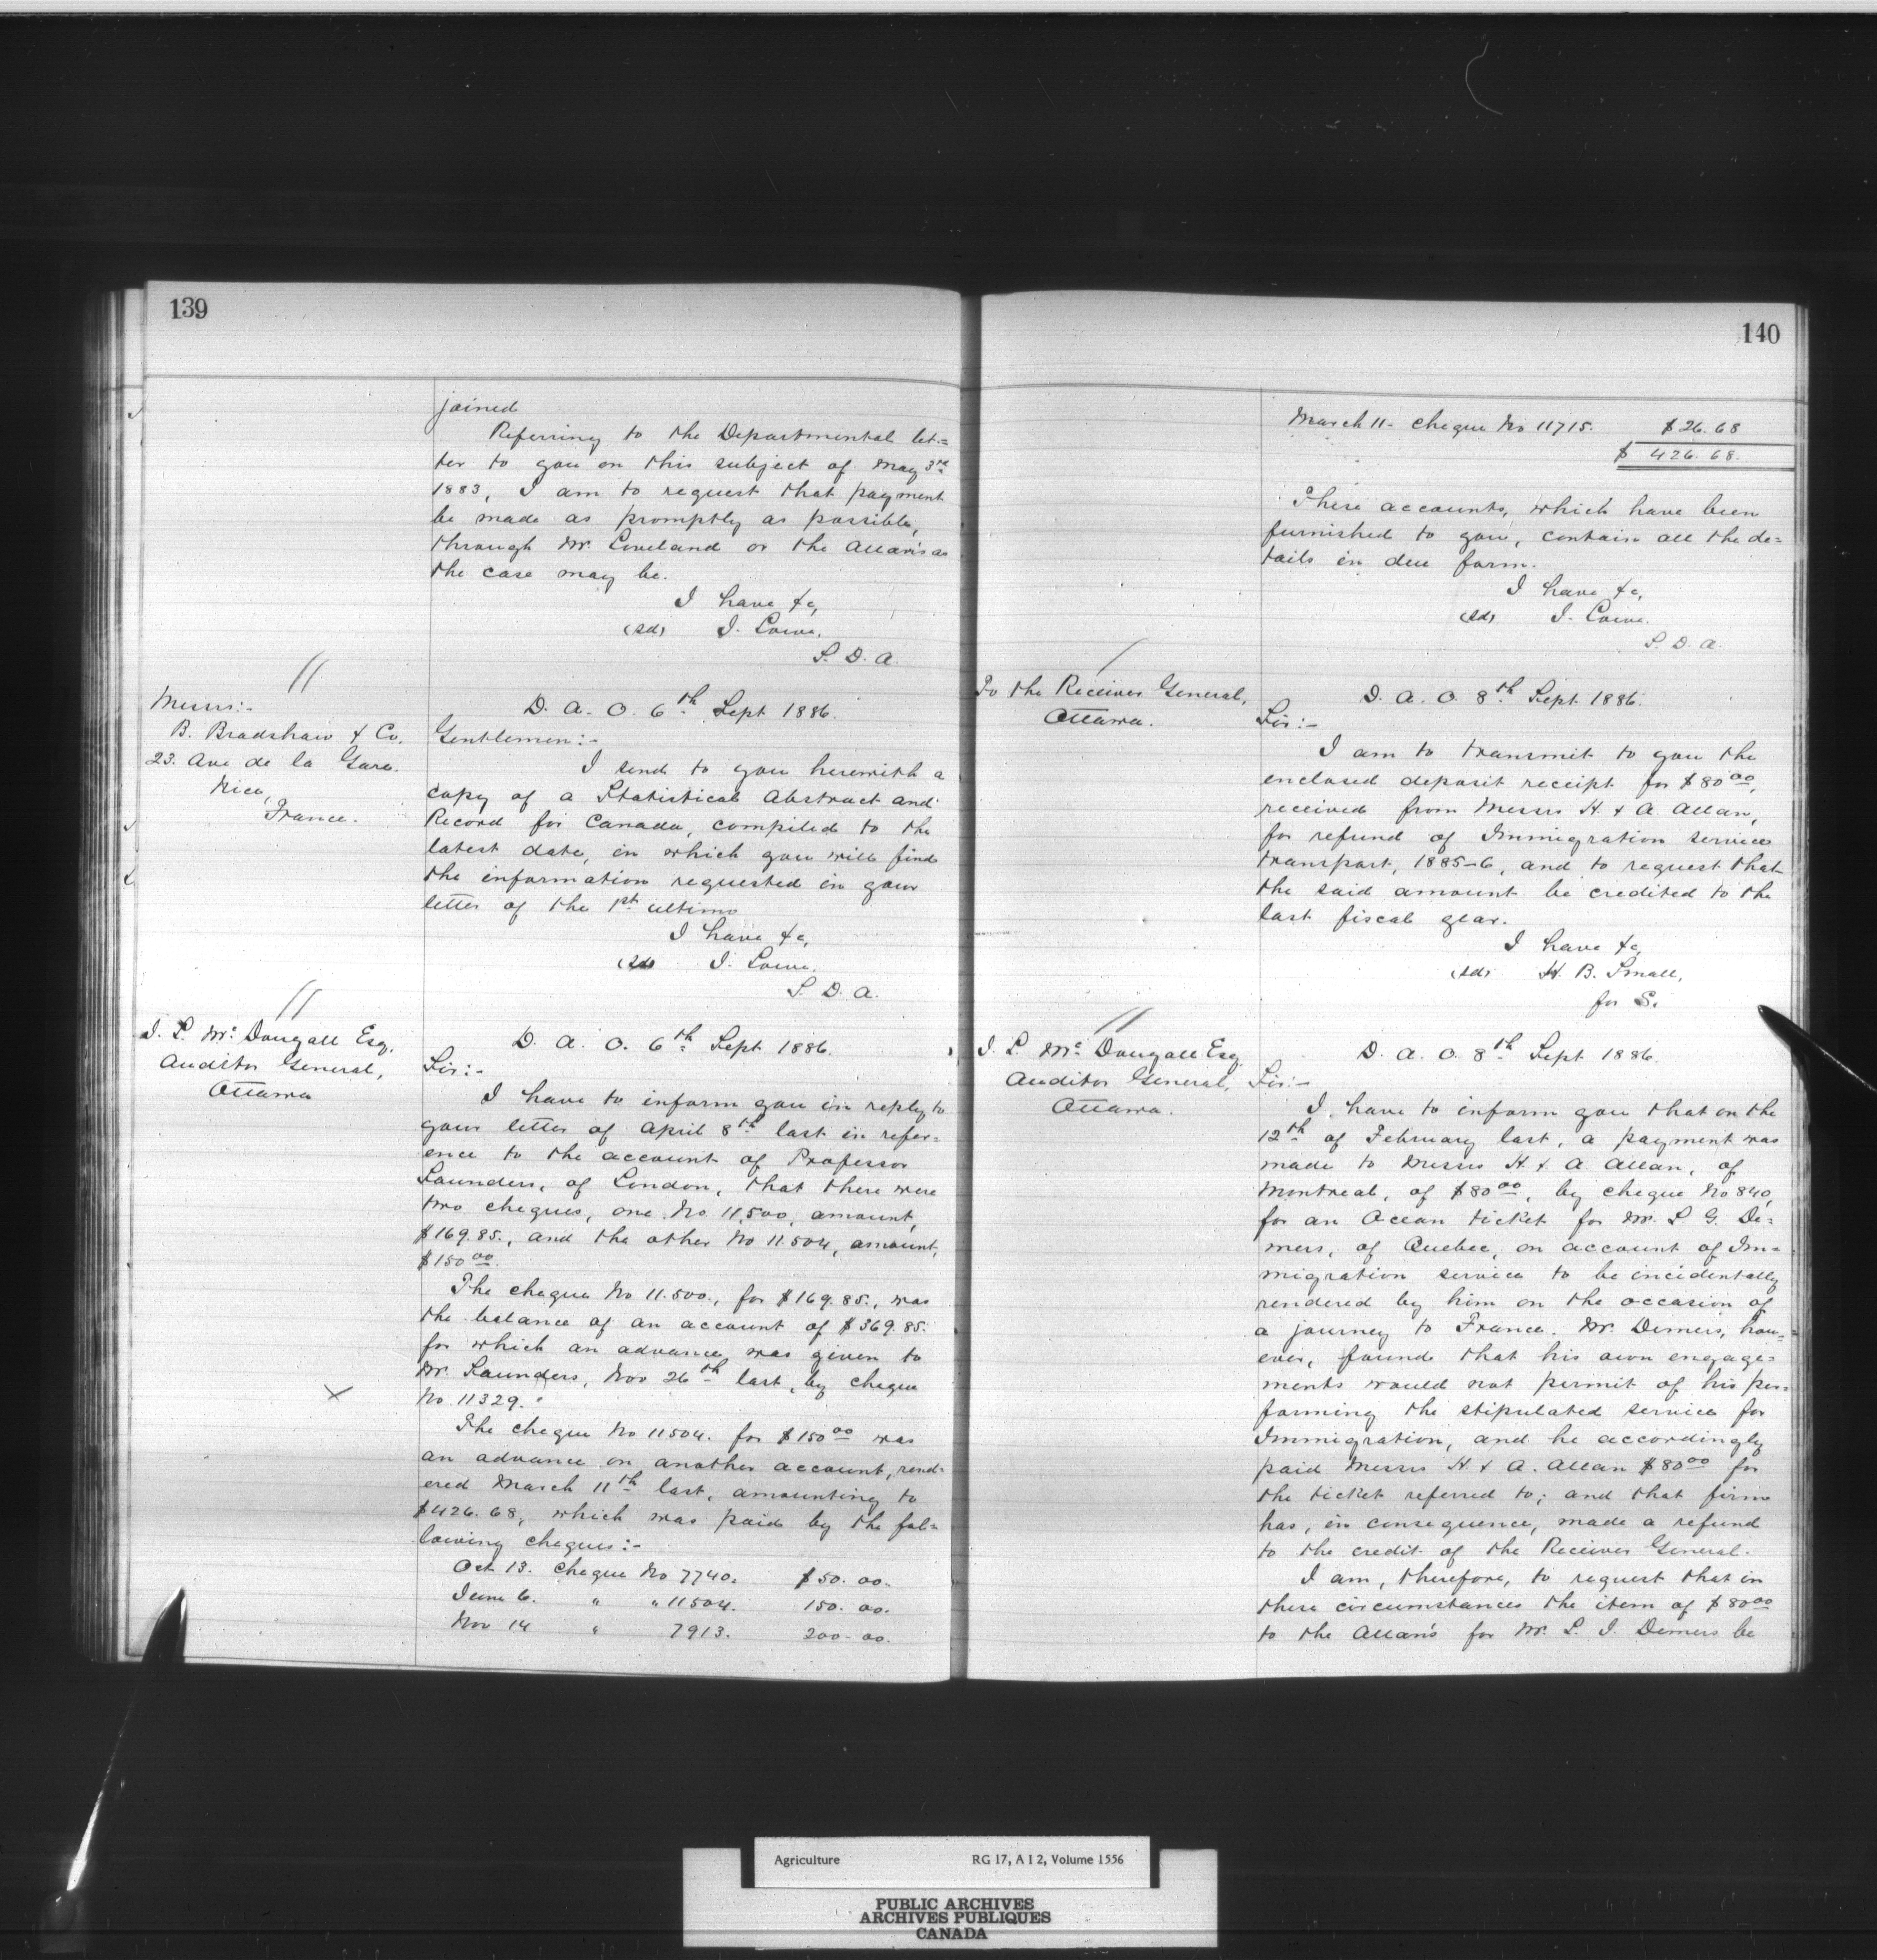 139
joined
Referring to the Departmental let-
ter to you on this subject of May 3rd
1883, I am to request that payment
be made as promptly as possible,
through Mr. Loveland or the Allan's as
the case may be.
I have &c,
(sd) J. Lowe.
S. D. A.
Messrs:-
B. Bradshaw & Co.
23. Ave de la Gare.
Nice,
France.
D. A. O. 6th Sept 1886.
Gentlemen:-
I send to you herewith a
copy of a Statistical Abstract and
Record for Canada, compiled to the
latest date, in which you will find
the information requested in your
letter of the 1st ultimo
I have &c,
(sd) J. Lowe.
S. D. A.
J. L. Mc Dougall Esq.
Auditor General,
Ottawa
D. A. O. 6th Sept 1886.
Sir:-
I have to inform you in reply to
your letter of April 8th last in refer-
ence to the account of Professor
Saunders, of London, that there were
two cheques, one No. 11,500, amount,
$169.85., and the other No 11.504, amount,
$150 00.
The cheque No 11.500., for $169.85., was
the balance of an account of $369.85.
for which an advance was given to
Mr. Saunders, Nov 26th last, by cheque
No. 11329.
X
The cheque No 11504. for $150 00 was
an advance on another account, rend-
ered March 11th last, amounting to
$426.68, which was paid by the fol-
lowing cheques:-
Oct 13. Cheque No 7740. $50.00.
June 6. " " 11504. 150.00.
Nov 14 " 7913. 200-00.
140
March 11- Cheque No 11715. $26.68
$ 426.68.
These accounts, which have been
furnished to you, contain all the de-
tails in due form.
I have &c,
(sd) J. Lowe.
S. D. A.
To the Receiver General,
Ottawa.
D. A. O. 8th Sept 1886.
Sir:-
I am to transmit to you the
enclosed deposit receipt for $80 00,
received from Messrs H. & A. Allan,
for refund of Immigration service
transport, 1885-6, and to request that
the said amount be credited to the
last fiscal year.
I have &c,
(sd) H. B. Small,
for S.
J. L. Mc Dougall Esq
Auditor General,
Ottawa.
D. A. O. 8th Sept 1886.
Sir:-
I have to inform you that on the
12th of February last, a payment was
made to Messrs H. & A. Allan, of
Montreal, of $80 00, by cheque No 840,
for an Ocean ticket for Mr. L G. De-
mers, of Quebec, on account of Im-
migration service to be incidentally
rendered by him on the occasion of
a journey to France. Mr. Demers, how-
ever, found that his own engage-
ments would not permit of his per-
forming the stipulated service for
Immigration, and he accordingly
paid Messrs H. & A. Allan $80 00 for
the ticket referred to; and that firm
has, in consequence, made a refund
to the credit of the Receiver General.
I am, therefore, to request that in
these circumstances the item of $80 00
to the Allan's for Mr. L. J. Demers be
Agriculture RG 17, A I 2, Volume 1556
PUBLIC ARCHIVES
ARCHIVES PUBLIQUES
CANADA